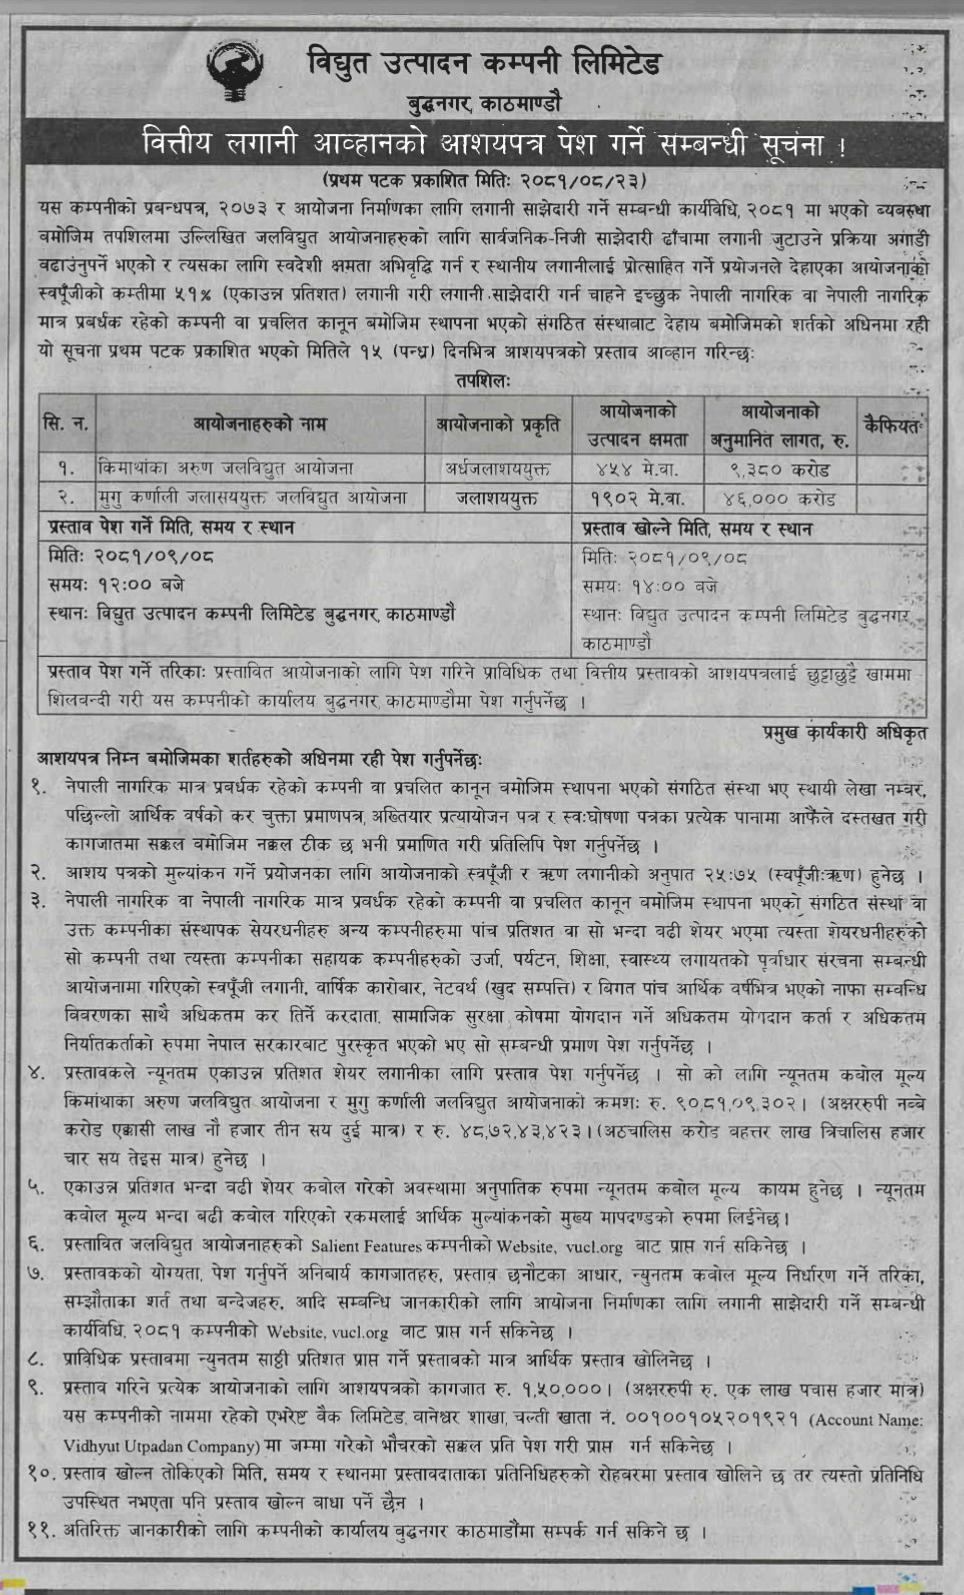 विद्युत उत्पादन कम्पनी लिमिटेड
बुद्धनगर, काठमाण्डौ
वित्तीय लगानी आव्हानको आशयपत्र पेश गर्ने सम्बन्धी सूचना !
(प्रथम पटक प्रकाशित मितिः २०८१/०८/२३)
यस कम्पनीको प्रबन्धपत्र, २०७३ र आयोजना निर्माणका लागि लगानी साझेदारी गर्ने सम्बन्धी कार्यविधि, २०८१ मा भएको व्यबस्था
बमोजिम तपशिलमा उल्लिखित जलविद्युत आयोजनाहरुको लागि सार्वजनिक-निजी साझेदारी ढाँचामा लगानी जुटाउने प्रक्रिया अगाडी
वढाउनुपर्ने भएको र त्यसका लागि स्वदेशी क्षमता अभिवृद्धि गर्न र स्थानीय लगानीलाई प्रोत्साहित गर्ने प्रयोजनले देहाएका आयोजनाको
स्वपूँजीको कम्तीमा ५१% (एकाउन्न प्रतिशत) लगानी गरी लगानी साझेदारी गर्न चाहने इच्छुक नेपाली नागरिक वा नेपाली नागरिक
मात्र प्रबर्धक रहेको कम्पनी वा प्रचलित कानून बमोजिम स्थापना भएको संगठित संस्थाबाट देहाय बमोजिमको शर्तको अधिनमा रही
यो सूचना प्रथम पटक प्रकाशित भएको मितिले १५ (पन्ध्र) दिनभित्र आशयपत्रको प्रस्ताव आव्हान गरिन्छः
तपशिलः
सि. न. आयोजनाहरुको नाम आयोजनाको प्रकृति आयोजनाको उत्पादन क्षमता आयोजनाको अनुमानित लागत, रु. कैफियत
१. किमाथांका अरुण जलविद्युत आयोजना अर्धजलाशययुक्त ४५४ मे.वा. ९,३८० करोड
२. मुगु कर्णाली जलासययुक्त जलविद्युत आयोजना जलाशययुक्त १९०२ मे.वा. ४६,००० करोड
प्रस्ताव पेश गर्ने मिति, समय र स्थान प्रस्ताव खोल्ने मिति, समय र स्थान
मितिः २०८१/०९/०८ मितिः २०८१/०९/०८
समयः १२:०० बजे समयः १४:०० वजे
स्थानः विद्युत उत्पादन कम्पनी लिमिटेड बुद्धनगर, काठमाण्डौ स्थानः विद्युत उत्पादन कम्पनी लिमिटेड बुद्धनगर,
काठमाण्डौ
प्रस्ताव पेश गर्ने तरिकाः प्रस्तावित आयोजनाको लागि पेश गरिने प्राविधिक तथा वित्तीय प्रस्तावको आशयपत्रलाई छुट्टाछुट्टै खाममा
शिलवन्दी गरी यस कम्पनीको कार्यालय बुद्धनगर, काठमाण्डौमा पेश गर्नुपर्नेछ ।
प्रमुख कार्यकारी अधिकृत
आशयपत्र निम्न बमोजिमका शर्तहरुको अधिनमा रही पेश गर्नुपर्नेछः
१. नेपाली नागरिक मात्र प्रबर्धक रहेको कम्पनी वा प्रचलित कानून वमोजिम स्थापना भएको संगठित संस्था भए स्थायी लेखा नम्बर,
पछिल्लो आर्थिक वर्षको कर चुक्ता प्रमाणपत्र, अख्तियार प्रत्यायोजन पत्र र स्वःघोषणा पत्रका प्रत्येक पानामा आफैंले दस्तखत गरी
कागजातमा सक्कल वमोजिम नक्कल ठीक छ भनी प्रमाणित गरी प्रतिलिपि पेश गर्नुपर्नेछ ।
२. आशय पत्रको मुल्यांकन गर्ने प्रयोजनका लागि आयोजनाको स्वपूँजी र ऋण लगानीको अनुपात २५:७५ (स्वपूँजी:ऋण) हुनेछ ।
३. नेपाली नागरिक वा नेपाली नागरिक मात्र प्रवर्धक रहेको कम्पनी वा प्रचलित कानून वमोजिम स्थापना भएको संगठित संस्था वा
उक्त कम्पनीका संस्थापक सेयरधनीहरु अन्य कम्पनीहरुमा पांच प्रतिशत वा सो भन्दा वढी शेयर भएमा त्यस्ता शेयरधनीहरुको
सो कम्पनी तथा त्यस्ता कम्पनीका सहायक कम्पनीहरुको उर्जा, पर्यटन, शिक्षा, स्वास्थ्य लगायतको पूर्त्राधार संरचना सम्बन्धी
आयोजनामा गरिएको स्वपूँजी लगानी, वार्षिक कारोबार, नेटवर्थ (खुद सम्पत्ति) र बिगत पांच आर्थिक वर्षभित्र भएको नाफा सम्वन्धि
विवरणका साथै अधिकतम कर तिर्ने करदाता, सामाजिक सुरक्षा कोषमा योगदान गर्ने अधिकतम योगदान कर्ता र अधिकतम
निर्यातकर्ताको रुपमा नेपाल सरकारबाट पुरस्कृत भएको भए सो सम्बन्धी प्रमाण पेश गर्नुपर्नेछ ।
४. प्रस्तावकले न्यूनतम एकाउन्न प्रतिशत शेयर लगानीका लागि प्रस्ताव पेश गर्नुपर्नेछ । सो को लागि न्यूनतम कवोल मूल्य
किमाथांका अरुण जलविद्युत आयोजना र मुगु कर्णाली जलविद्युत आयोजनाको क्रमशः रु. ९०,८१,०९,३०२। (अक्षररुपी नव्बे
करोड एक्कासी लाख नौ हजार तीन सय दुई मात्र) र रु. ४८,७२,४३,४२३। (अठचालिस करोड वहत्तर लाख त्रिचालिस हजार
चार सय तेइस मात्र) हुनेछ ।
५. एकाउन्न प्रतिशत भन्दा वढी शेयर कवोल गरेको अवस्थामा अनुपातिक रुपमा न्यूनतम कबोल मूल्य कायम हुनेछ । न्यूनतम
कवोल मूल्य भन्दा बढी कवोल गरिएको रकमलाई आर्थिक मुल्यांकनको मुख्य मापदण्डको रुपमा लिईनेछ।
६. प्रस्तावित जलविद्युत आयोजनाहरुको Salient Features कम्पनीको Website, vucl.org बाट प्राप्त गर्न सकिनेछ ।
७. प्रस्तावकको योग्यता, पेश गर्नुपर्ने अनिबार्य कागजातहरु, प्रस्ताव छनौटका आधार, न्युनतम कबोल मूल्य निर्धारण गर्ने तरिका,
सम्झौताका शर्त तथा बन्देजहरु, आदि सम्बन्धि जानकारीको लागि आयोजना निर्माणका लागि लगानी साझेदारी गर्ने सम्बन्धी
कार्यविधि, २०८१ कम्पनीको Website, vucl.org वाट प्राप्त गर्न सकिनेछ ।
८. प्राविधिक प्रस्तावमा न्युनतम साठ्ठी प्रतिशत प्राप्त गर्ने प्रस्तावको मात्र आर्थिक प्रस्ताव खोलिनेछ ।
९. प्रस्ताव गरिने प्रत्येक आयोजनाको लागि आशयपत्रको कागजात रु. १,५०,०००। (अक्षररुपी रु. एक लाख पचास हजार मात्र)
यस कम्पनीको नाममा रहेको एभरेष्ट वैंक लिमिटेड, वानेश्वर शाखा, चल्ती खाता नं. ००१००१०५२०१९२१ (Account Name:
Vidhyut Utpadan Company) मा जम्मा गरेको भौचरको सक्कल प्रति पेश गरी प्राप्त गर्न सकिनेछ ।
१०. प्रस्ताव खोल्न तोकिएको मिति, समय र स्थानमा प्रस्तावदाताका प्रतिनिधिहरुको रोहबरमा प्रस्ताव खोलिने छ तर त्यस्तो प्रतिनिधि
उपस्थित नभएता पनि प्रस्ताव खोल्न बाधा पर्ने छैन ।
११. अतिरिक्त जानकारीको लागि कम्पनीको कार्यालय वुद्धनगर काठमाडौंमा सम्पर्क गर्न सकिने छ ।